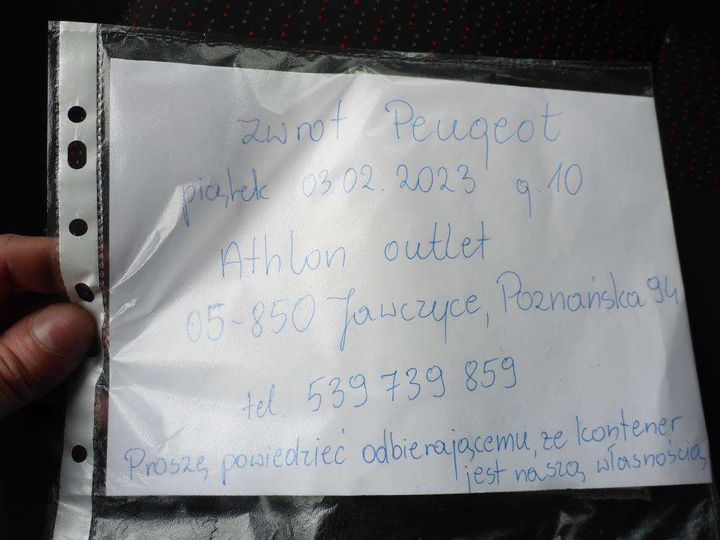 zwrot Peugeot
piątek 03.02.2023 g.10
Athlon outlet
05-850 Jawczyce, Poznańska 94
tel. 539 739 859
Proszę powiedzieć odbierającemu, że kontener
jest naszą własnością